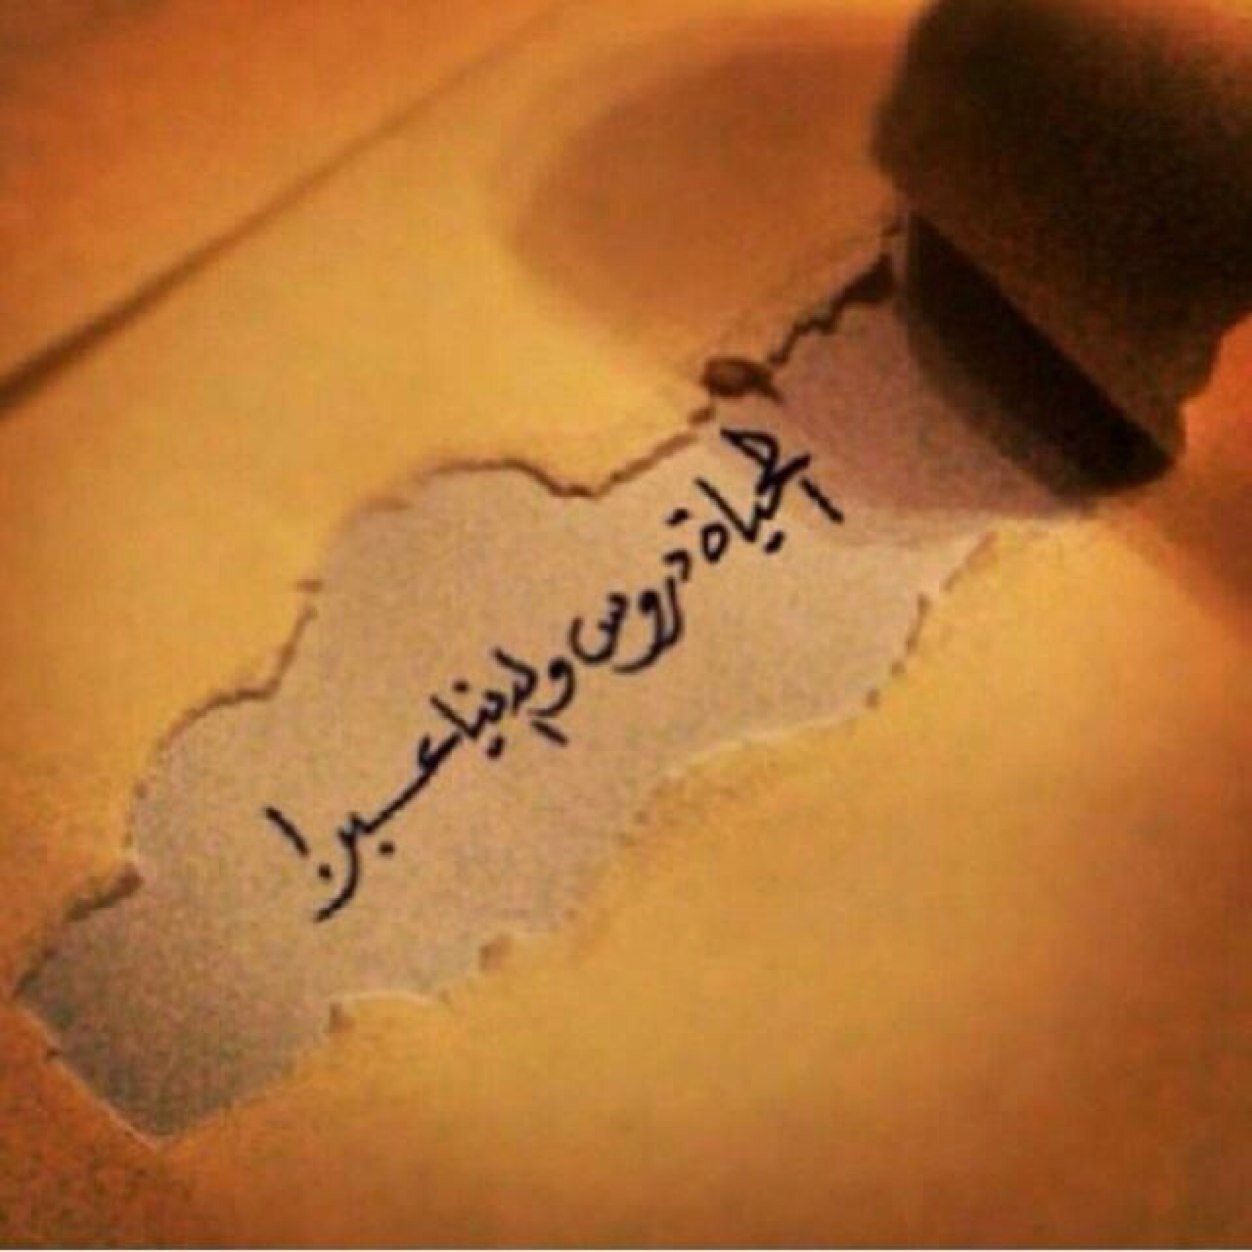 الحياة دروس ولدينا عبر!